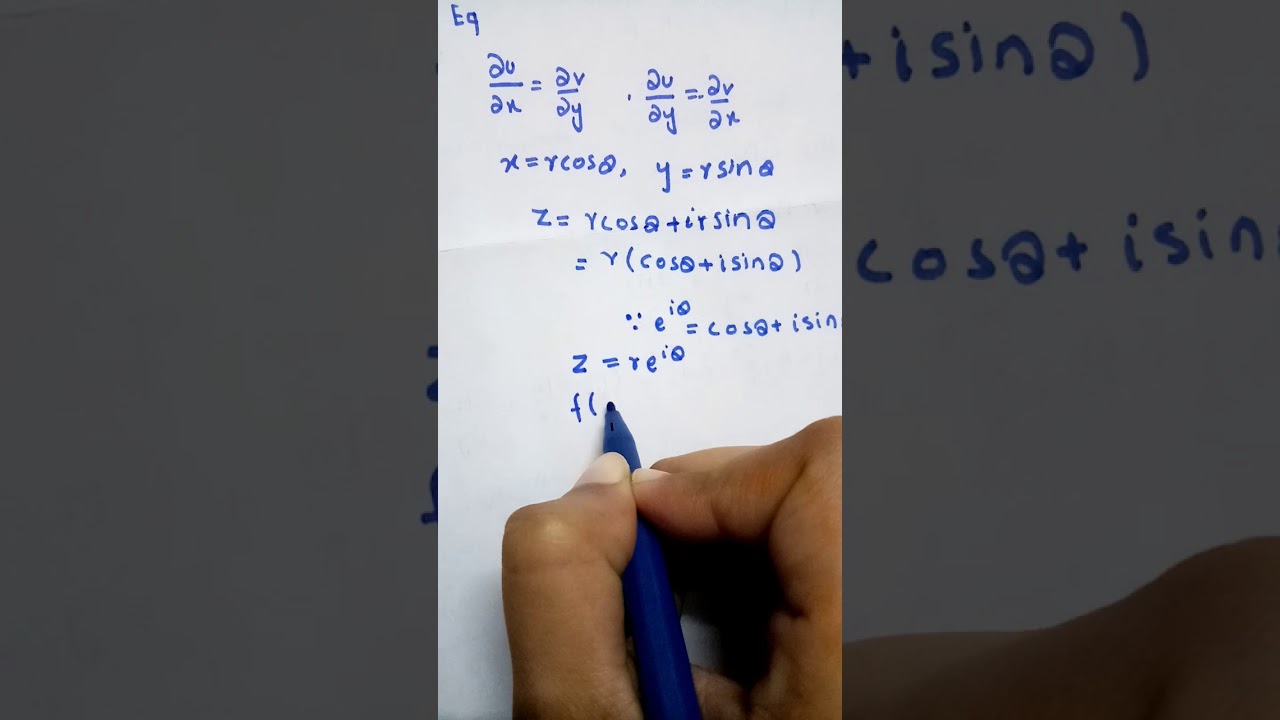 Eq
∂u/∂x = ∂v/∂y . ∂u/∂y = -∂v/∂x
x = r cosθ, y = r sinθ
z = r cosθ + i r sinθ
= r (cosθ + i sinθ)
∵ e^iθ = cosθ + i sin
z = r e^iθ
f(
+ i sinθ)
cosθ + i sin